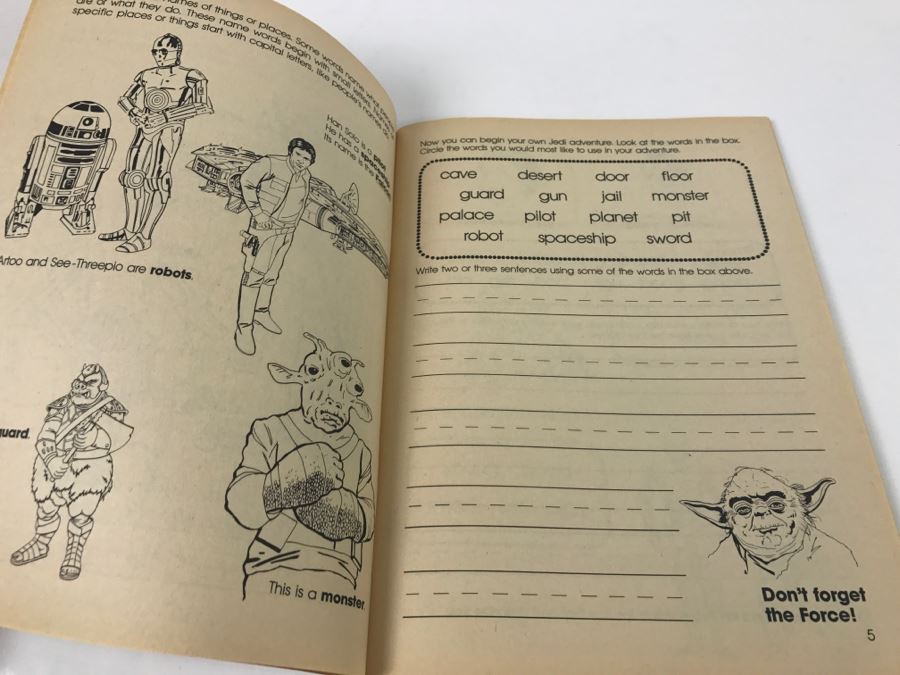 names of things or places. Some words name what people
are or what they do. These name words begin with small letters. Names
specific places or things start with capital letters, like people's names do.
Han Solo is a pilot.
He has a spaceship.
Its name is the
Artoo and See-Threepio are robots.
guard.
This is a monster.
Now you can begin your own Jedi adventure. Look at the words in the box.
Circle the words you would most like to use in your adventure.
cave desert door floor
guard gun jail monster
palace pilot planet pit
robot spaceship sword
Write two or three sentences using some of the words in the box above.
Don't forget
the Force!
5